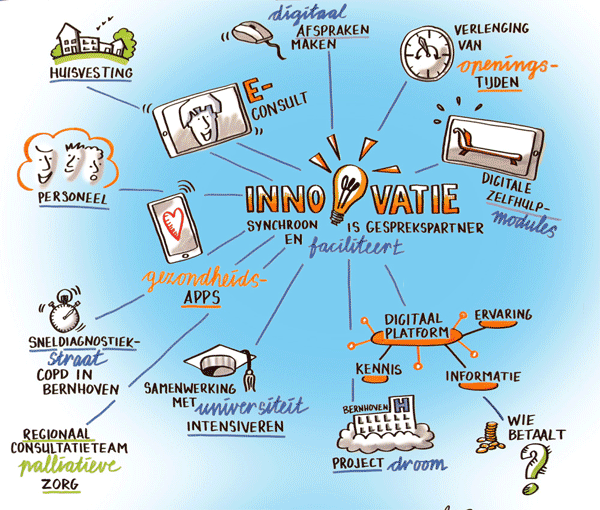 digitaal
AFSPRAKEN
MAKEN
VERLENGING
VAN
openings-
TIJDEN
HUISVESTING
E-
CONSULT
DIGITALE
ZELFHULP-
modules
PERSONEEL
INNOVATIE
SYNCHROON IS GESPREKSPARTNER
EN faciliteert
gezondheids-
APPS
SNELDIAGNOSTIEK-
straat
COPD IN
BERNHOVEN
SAMENWERKING
MET universiteit
INTENSIVEREN
DIGITAAL
PLATFORM
ERVARING
KENNIS
INFORMATIE
BERNHOVEN H
PROJECT droom
WIE
BETAALT
?
REGIONAAL
CONSULTATIETEAM
palliatieve
ZORG